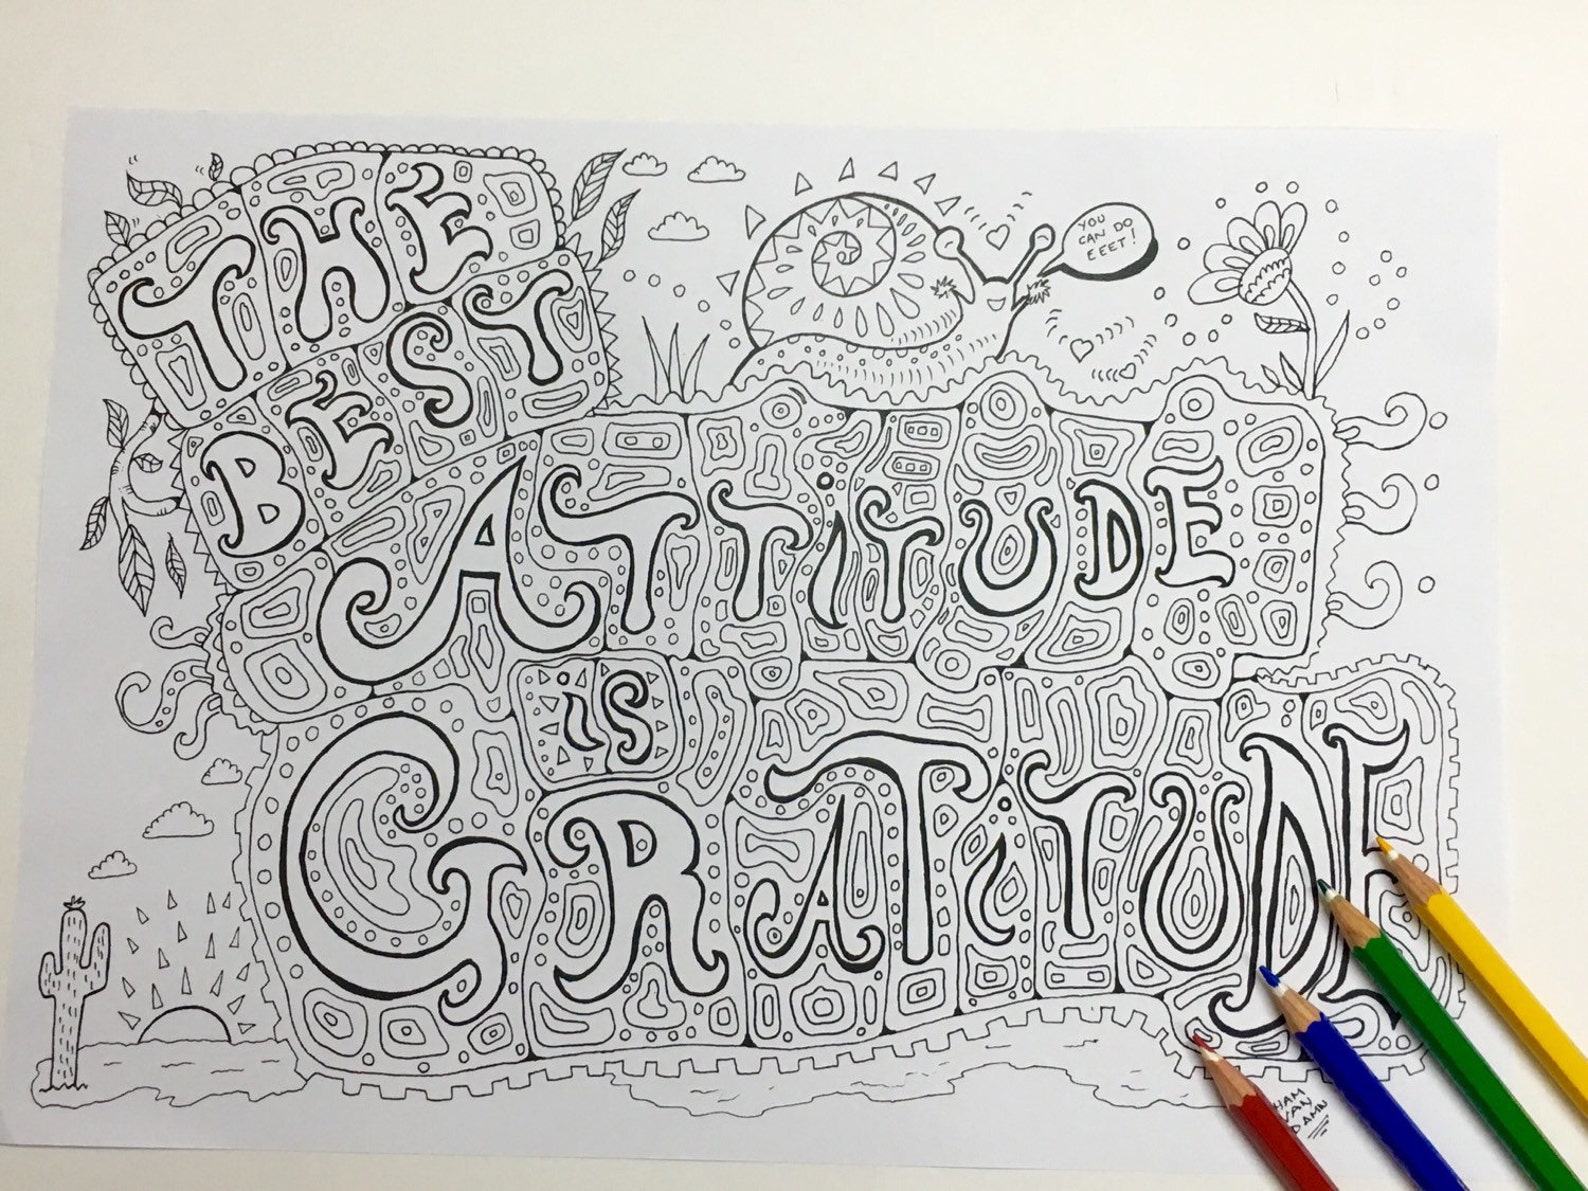 THE
BEST
ATTITUDE
iS
GRATITUDE
YOU
CAN DO
EEET!
HAM
VAN
DAMN